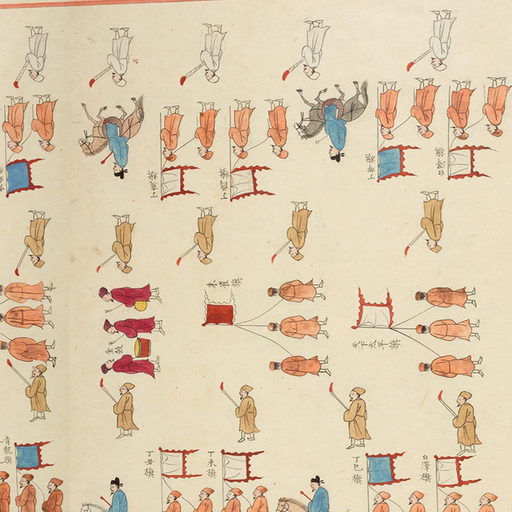 丁亥旗
丁酉旗
丁卯旗
白澤旗
金鼓
朱雀旗
天下太平旗
青龍旗
丁丑旗
丁未旗
丁巳旗
白澤旗